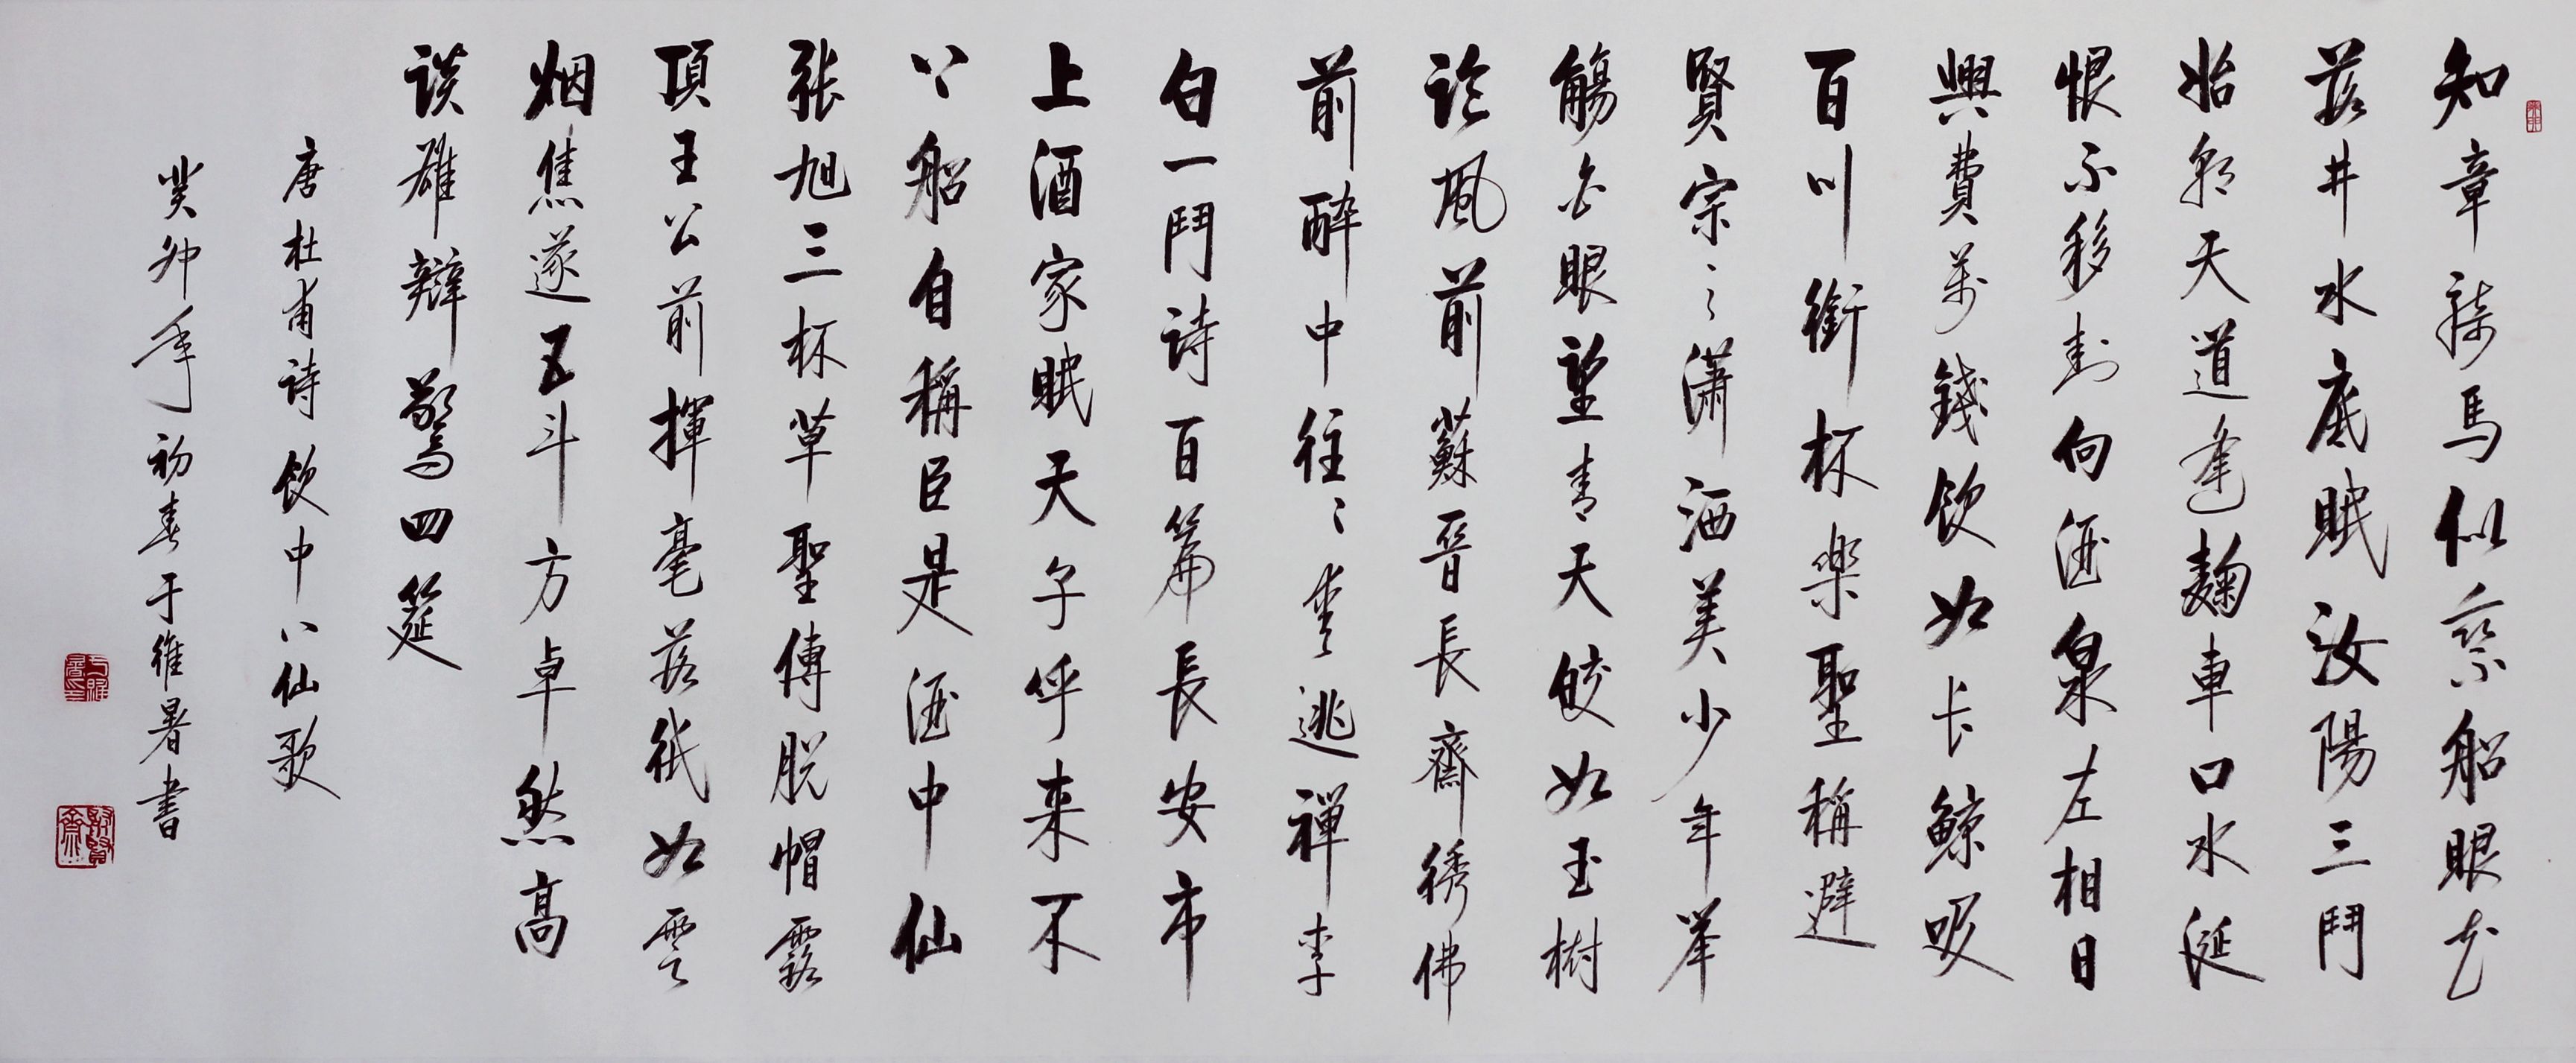 知章騎馬似乘船眼花
落井水底眠汝陽三鬥
始朝天道逢麴車口水涎
恨不移封向酒泉左相日
興費萬錢飲如長鯨吸
百川銜杯樂聖稱避
賢宗之瀟洒美少年举
觴白眼望青天皎如玉樹
臨風前蘇晉長齋绣佛
前醉中往往愛逃禪李
白一鬥詩百篇長安市
上酒家眠天子呼来不
上船自稱臣是酒中仙
張旭三杯草聖傳脱帽露
頂王公前揮毫落紙如雲
烟焦遂五斗方卓然高
談雄辯驚四筵
唐杜甫詩飲中八仙歌
癸卯年初春于維暑書